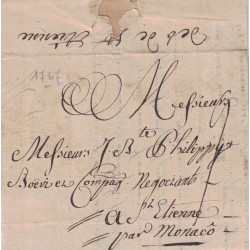 deb de St Etienne
1767
Messieurs
Messieurs J Bte Philippe
Boën et Compag Negociants
A St Etienne
par Monaco